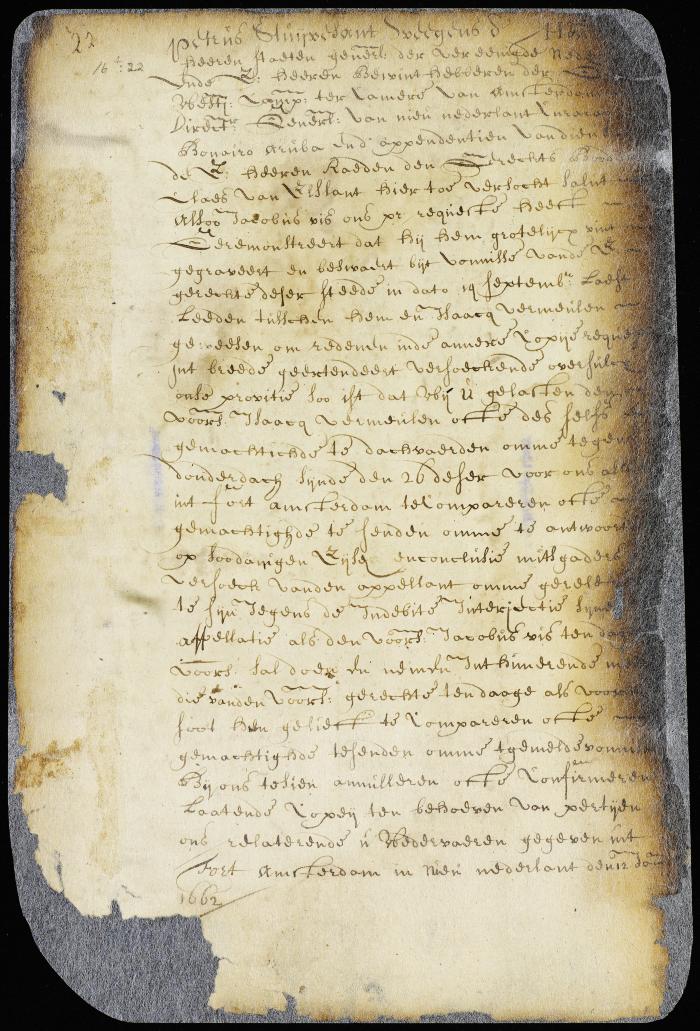 22
16:22
Petrus Stuijvesant Weegens d' Ho:
heeren Staeten gener: der vereenigde Nede
ende E: heeren Bewinthebberen der
Westi: Comp: ter Camere van Amsterdam
Direct: Gener: van nieu nederlant Curacao
Bonairo Aruba End' appendentien vandien
de E: heeren Raeden den Gerechts Bode
Claes van Elslant hier toe versocht Salut
Alsoo Jacobus vis ons pr requeste heeft
Geremonstreert dat hij hem grotelijcx vint
gegraveert en beswaert bijt vonnisse vande E
gerechte deser steede in dato 19 Septemb: Laest
Leeden tusschen hem en Isaacq vermeulen
gewesen om redenen inde annexe Copije reques
int breede geextendeert versoeckende oversulcx
onse provisie soo ist dat wij U gelasten den
voors: Isaacq vermeulen ofte des selfs
gemachtichde te dachvaerden omme tegens
donderdach sijnde den 26 deser voor ons al
int fort amsterdam te Compareren ofte
gemachtighde te senden omme te antwoort
op soodanigen Eijsch en conclusie mitsgaders
versoeck vanden appellant omme gerele
te sijn Jegens de Indebite Interjectie sijne
appellatie als den voors: Jacobus vis ten dage
voors: sal doen En nemen Inthimerende mede
die vanden voors: gerechte ten daage als voors
soot hen gelieft te Compareren ofte
gemachtighde tesenden omme tgemelde vonnis
Bij ons te sien annulleren ofte Confirmeren
Laatende Copeij ten behoeven van pertijen
ons relaterende u Wedervaeren gegeven int
Fort Amsterdam in Nieu nederlant den 12 Jan
1662